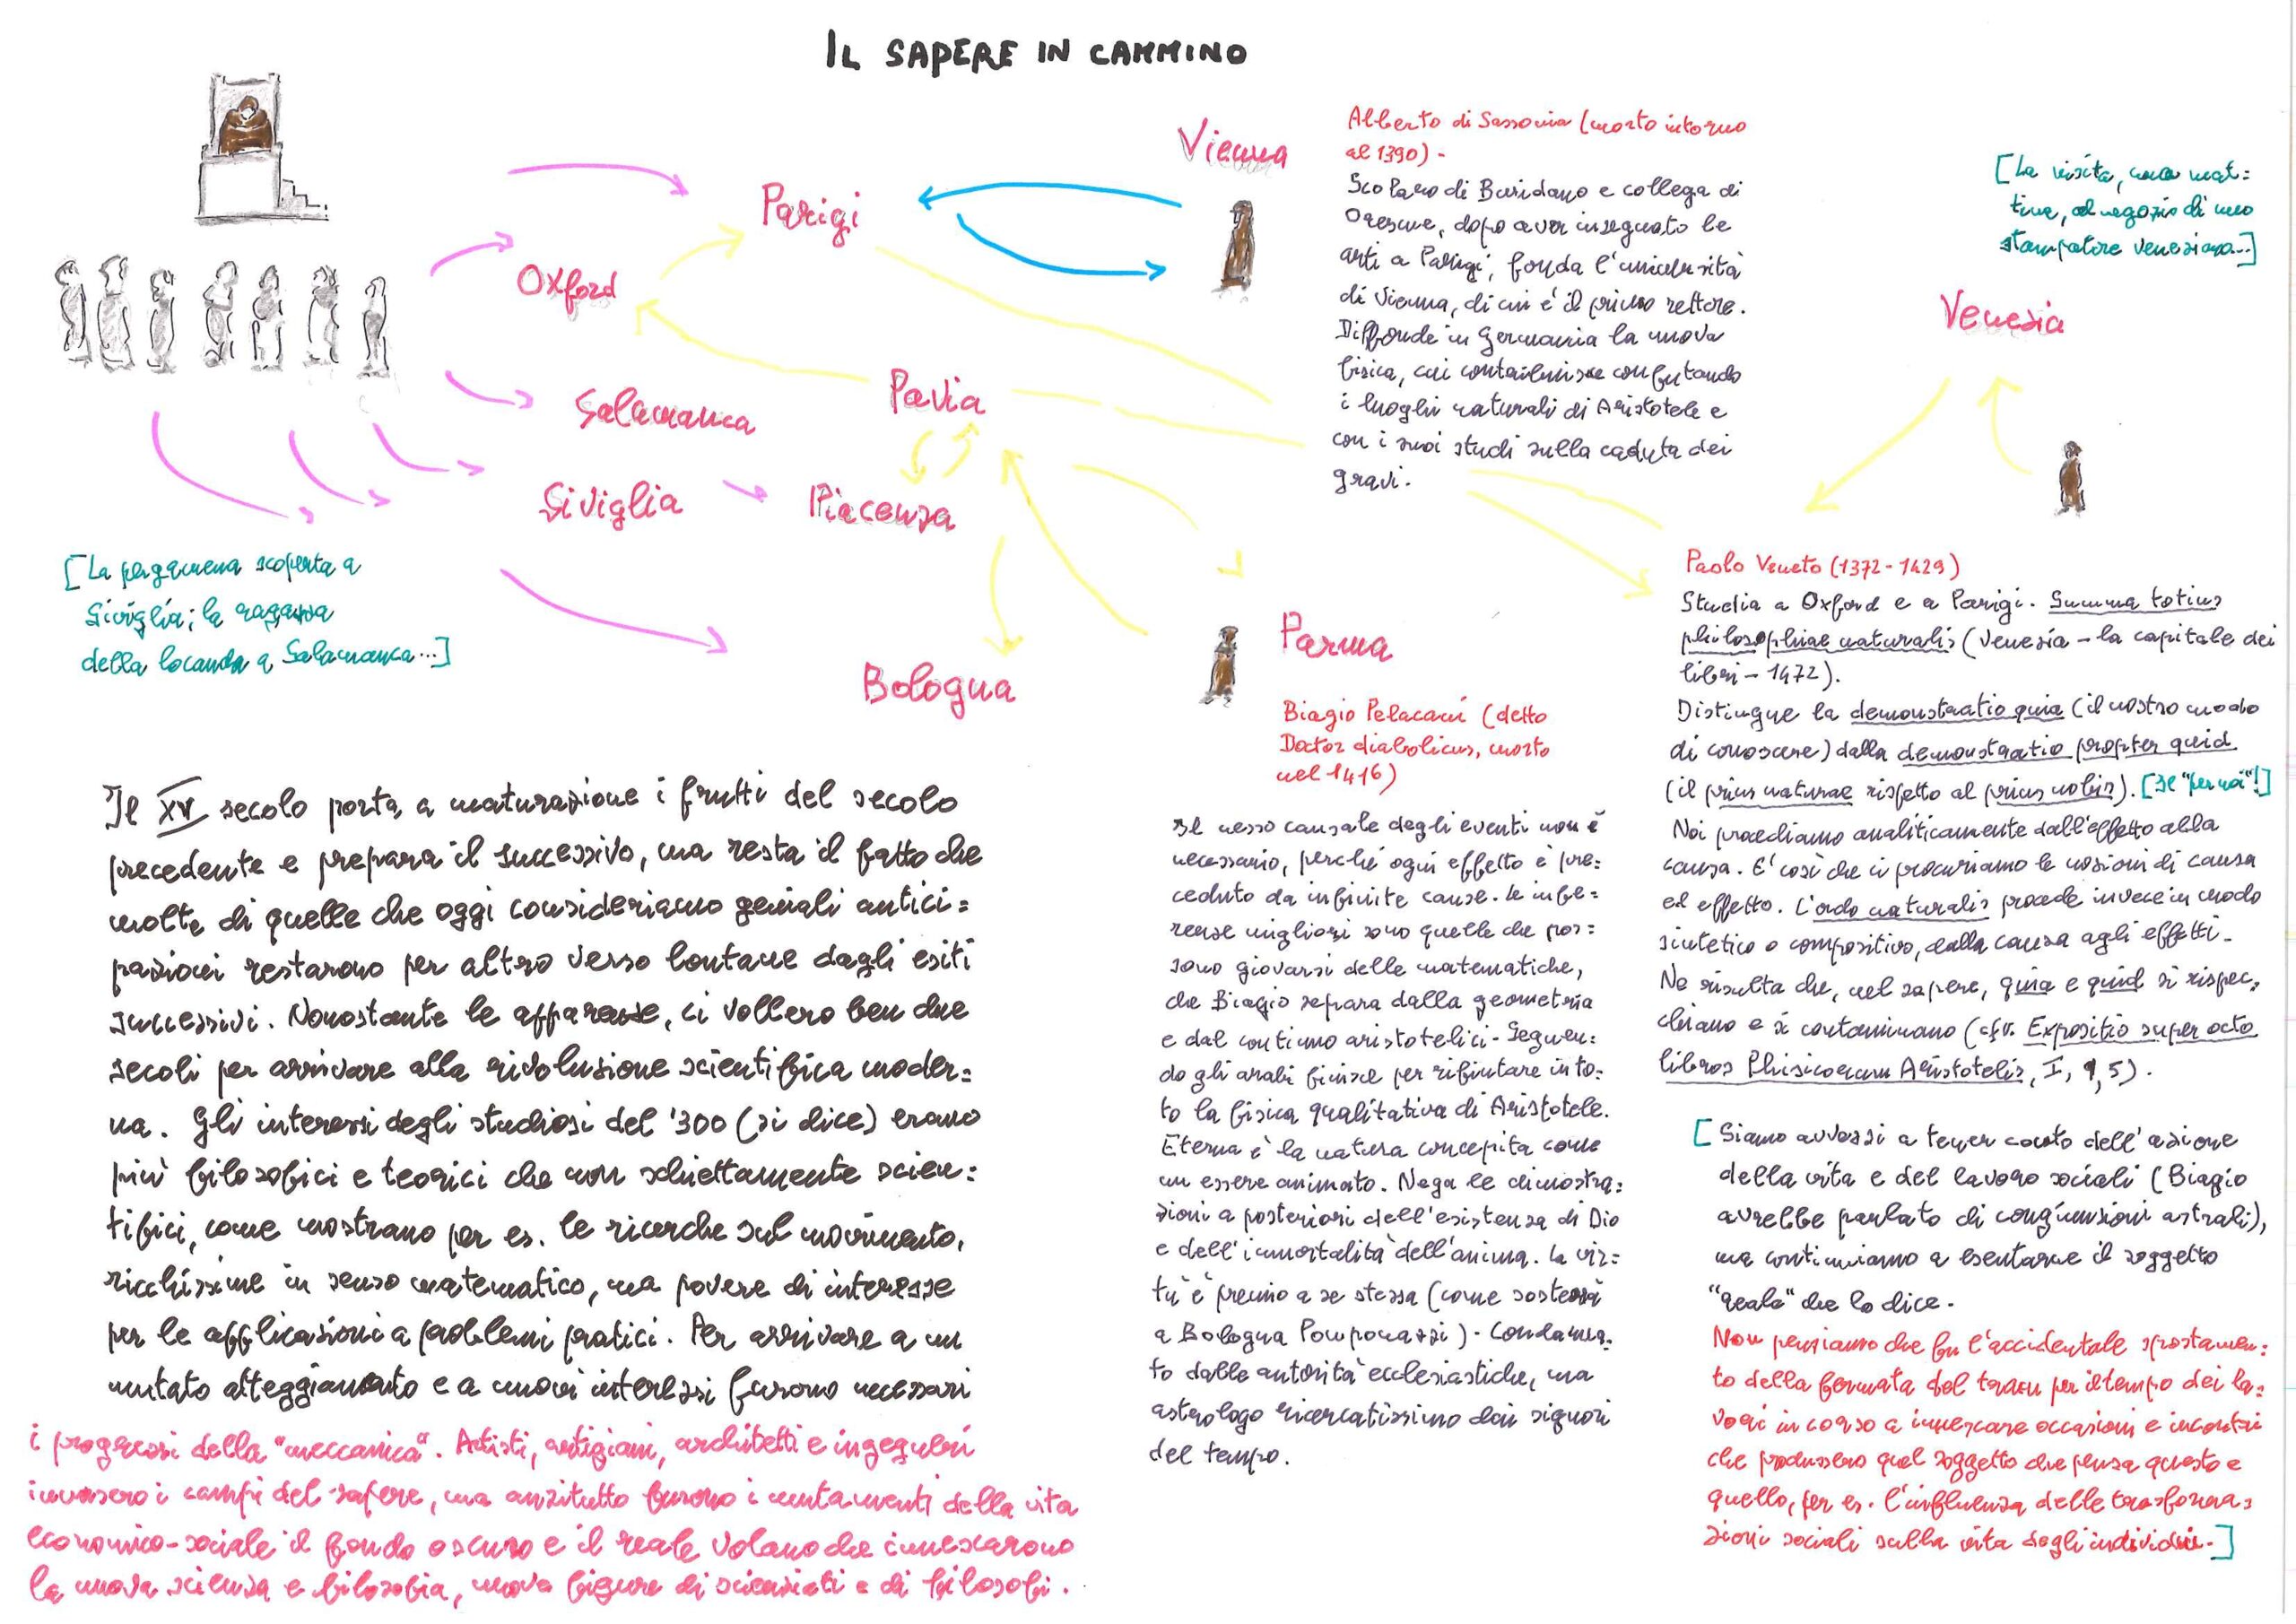 IL SAPERE IN CAMMINO
Vienna
Parigi
Oxford
Salamanca
Pavia
Siviglia
Piacenza
Bologna
[La pergamena scoperta a
Siviglia; la ragazza
della locanda a Salamanca...]
Il XV secolo porta a maturazione i frutti del secolo
precedente e prepara il successivo, ma resta il fatto che
molte di quelle che oggi consideriamo geniali antici=
pazioni restarono per altro verso lontane dagli esiti
successivi. Nonostante le apparenze, ci vollero ben due
secoli per arrivare alla rivoluzione scientifica moder=
na. Gli interessi degli studiosi del '300 (si dice) erano
più filosofici e teorici che non schiettamente scien=
tifici, come mostrano per es. le ricerche sul movimento,
ricchissime in senso matematico, ma povere di interesse
per le applicazioni a problemi pratici. Per arrivare a un
mutato atteggiamento e a nuovi interessi furono necessari
i progressi della "meccanica". Artisti, artigiani, architetti e ingegneri
invasero i campi del sapere, ma anzitutto furono i mutamenti della vita
economico-sociale il fondo oscuro e il reale volano che innescarono
la nuova scienza e filosofia, nuove figure di scienziati e di filosofi.
Alberto di Sassonia (morto intorno
al 1390) -
Scolaro di Buridano e collega di
Oresme, dopo aver insegnato le
arti a Parigi, fonda l'università
di Vienna, di cui è il primo rettore.
Diffonde in Germania la nuova
fisica, cui contribuisce confutando
i luoghi naturali di Aristotele e
con i suoi studi sulla caduta dei
gravi.
Parma
Biagio Pelacani (detto
Doctor diabolicus, morto
nel 1416)
Il nesso causale degli eventi non è
necessario, perché ogni effetto è pre=
ceduto da infinite cause. Le infe=
renze migliori sono quelle che pos=
sono giovarsi delle matematiche,
che Biagio separa dalla geometria
e dal continuo aristotelici. Seguen=
do gli arabi finisce per rifiutare in to=
to la fisica qualitativa di Aristotele.
Eterna è la natura concepita come
un essere animato. Nega le dimostra=
zioni a posteriori dell'esistenza di Dio
e dell'immortalità dell'anima. La vir=
tù è premio a se stessa (come sosterrà
a Bologna Pomponazzi). Condanna=
to dalle autorità ecclesiastiche, ma
astrologo ricercatissimo dai signori
del tempo.
[La visita, una mat=
tina, al negozio di uno
stampatore veneziano...]
Venezia
Paolo Veneto (1372-1429)
Studia a Oxford e a Parigi. Summa totius
philosophiae naturalis (Venezia - la capitale dei
libri - 1472).
Distingue la demonstratio quia (il nostro modo
di conoscere) dalla demonstratio propter quid
(il prius naturae rispetto al prius nobis). [Il "per noi"!]
Noi procediamo analiticamente dall'effetto alla
causa. E' così che ci procuriamo le nozioni di causa
ed effetto. L'ordo naturalis procede invece in modo
sintetico o compositivo, dalla causa agli effetti.
Ne risulta che, nel sapere, quia e quid si rispec=
chiano e si contaminano (cfr. Expositio super octo
libros Phisicorum Aristotelis, I, 9, 5).
[Siamo avvezzi a tener conto dell'azione
della vita e del lavoro sociali (Biagio
avrebbe parlato di congiunzioni astrali),
ma continuiamo a esentarne il soggetto
"reale" che lo dice.
Non pensiamo che fu l'accidentale spostamen=
to della fermata del tram per il tempo dei la=
vori in corso a innescare occasioni e incontri
che produssero quel soggetto che pensa questo e
quello, per es. l'influenza delle trasforma=
zioni sociali sulla vita degli individui.]